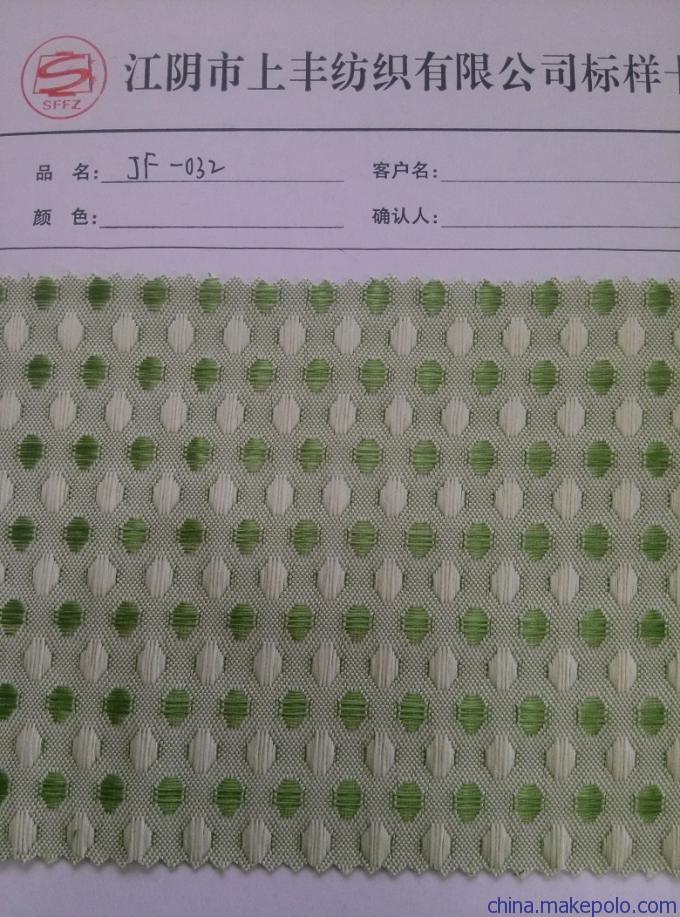 SFFZ
江阴市上丰纺织有限公司标样
品 名: JF-032 客户名:
颜 色: 确认人:
china.makepolo.com